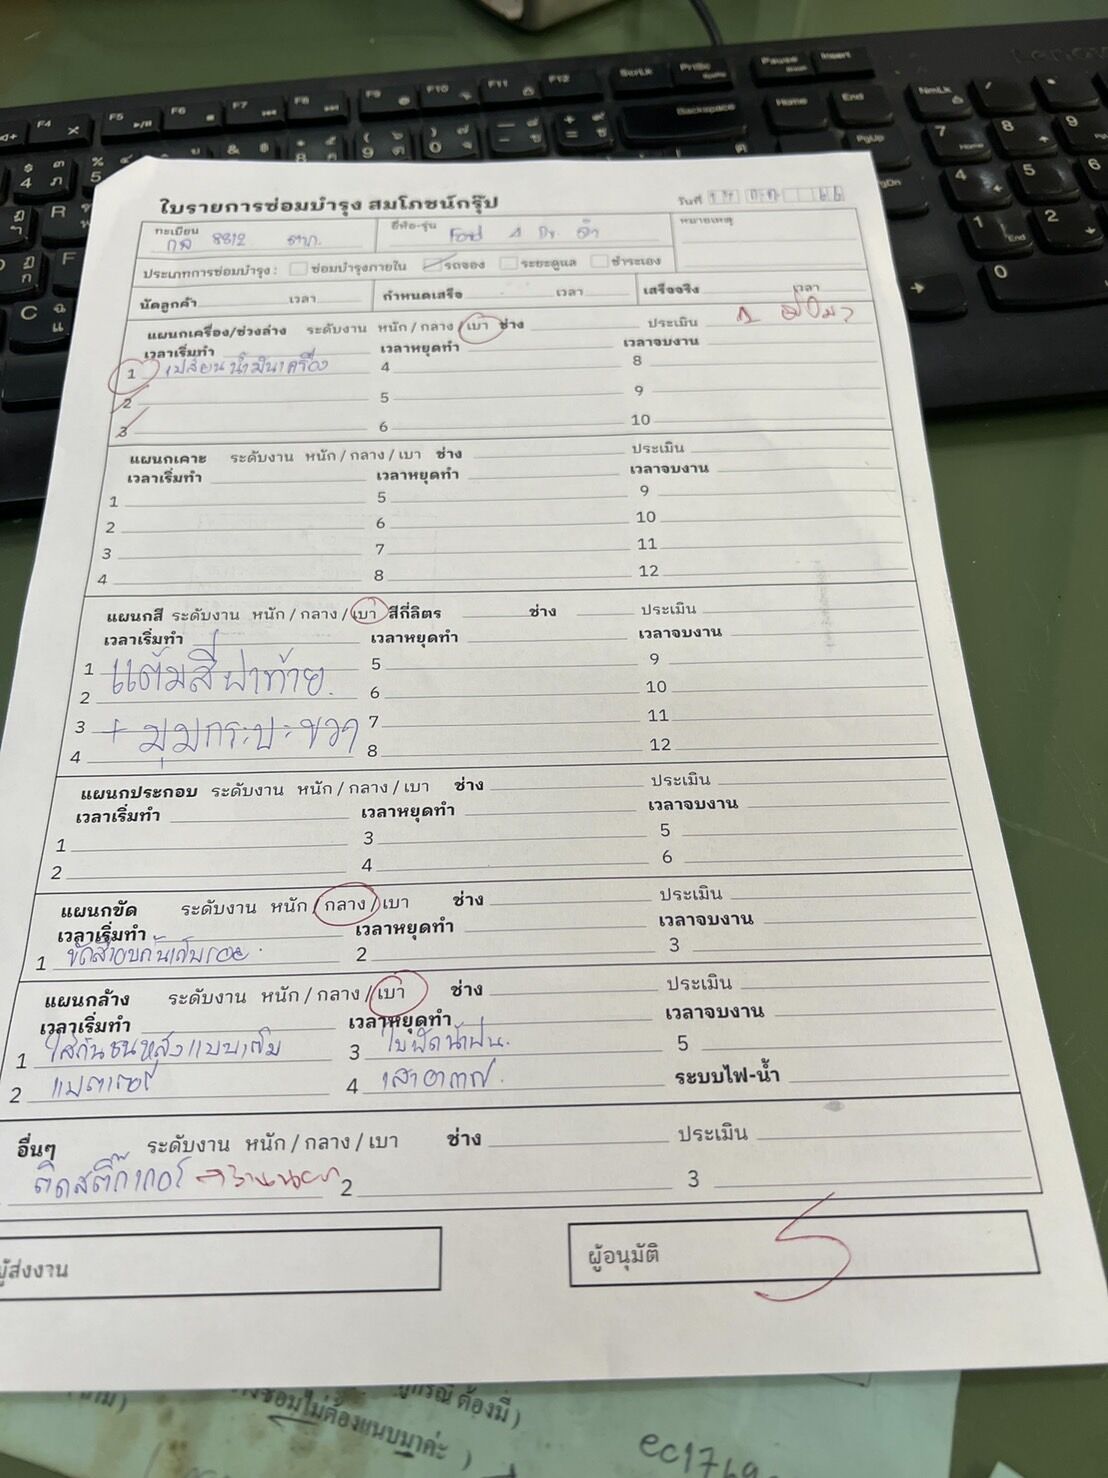 ใบรายการซ่อมบำรุง สมโภชน์กรุ๊ป
วันที่
ทะเบียน
กล 8812 ตาก
ยี่ห้อ-รุ่น Ford 4 Dr. ดำ
หมายเหตุ
ประเภทการซ่อมบำรุง : ซ่อมบำรุงภายใน รถจอง ระยะดูแล ชำระเอง
นัดลูกค้า เวลา กำหนดเสร็จ เวลา เสร็จจริง เวลา
แผนกเครื่อง/ช่วงล่าง ระดับงาน หนัก / กลาง / เบา ช่าง ประเมิน
เวลาเริ่มทำ เวลาหยุดทำ เวลาจบงาน
1 เปลี่ยนน้ำมันเครื่อง 4 8
2 5 9
3 6 10
แผนกเคาะ ระดับงาน หนัก / กลาง / เบา ช่าง ประเมิน
เวลาเริ่มทำ เวลาหยุดทำ เวลาจบงาน
1 5 9
2 6 10
3 7 11
4 8 12
แผนกสี ระดับงาน หนัก / กลาง / เบา สีกี่ลิตร ช่าง ประเมิน
เวลาเริ่มทำ เวลาหยุดทำ เวลาจบงาน
1 แต้มสีฝาท้าย 5 9
2 6 10
3 + มุมกระบะขวา 7 11
4 8 12
แผนกประกอบ ระดับงาน หนัก / กลาง / เบา ช่าง ประเมิน
เวลาเริ่มทำ เวลาหยุดทำ เวลาจบงาน
1 3 5
2 4 6
แผนกขัด ระดับงาน หนัก / กลาง / เบา ช่าง ประเมิน
เวลาเริ่มทำ เวลาหยุดทำ เวลาจบงาน
1 ขัดสี 2 3
แผนกล้าง ระดับงาน หนัก / กลาง / เบา ช่าง ประเมิน
เวลาเริ่มทำ เวลาหยุดทำ เวลาจบงาน
1 ใส่กันชนหลังแบบเดิม 3 ใบปัดน้ำฝน 5
2 แบตเตอรี่ 4 เสาอากาศ ระบบไฟ-น้ำ
อื่นๆ ระดับงาน หนัก / กลาง / เบา ช่าง ประเมิน
ติดสติ๊กเกอร์ 2 3
ผู้ส่งงาน ผู้อนุมัติ
ต้องมี )
ซ่อมไม่ต้องแนบมาค่ะ )